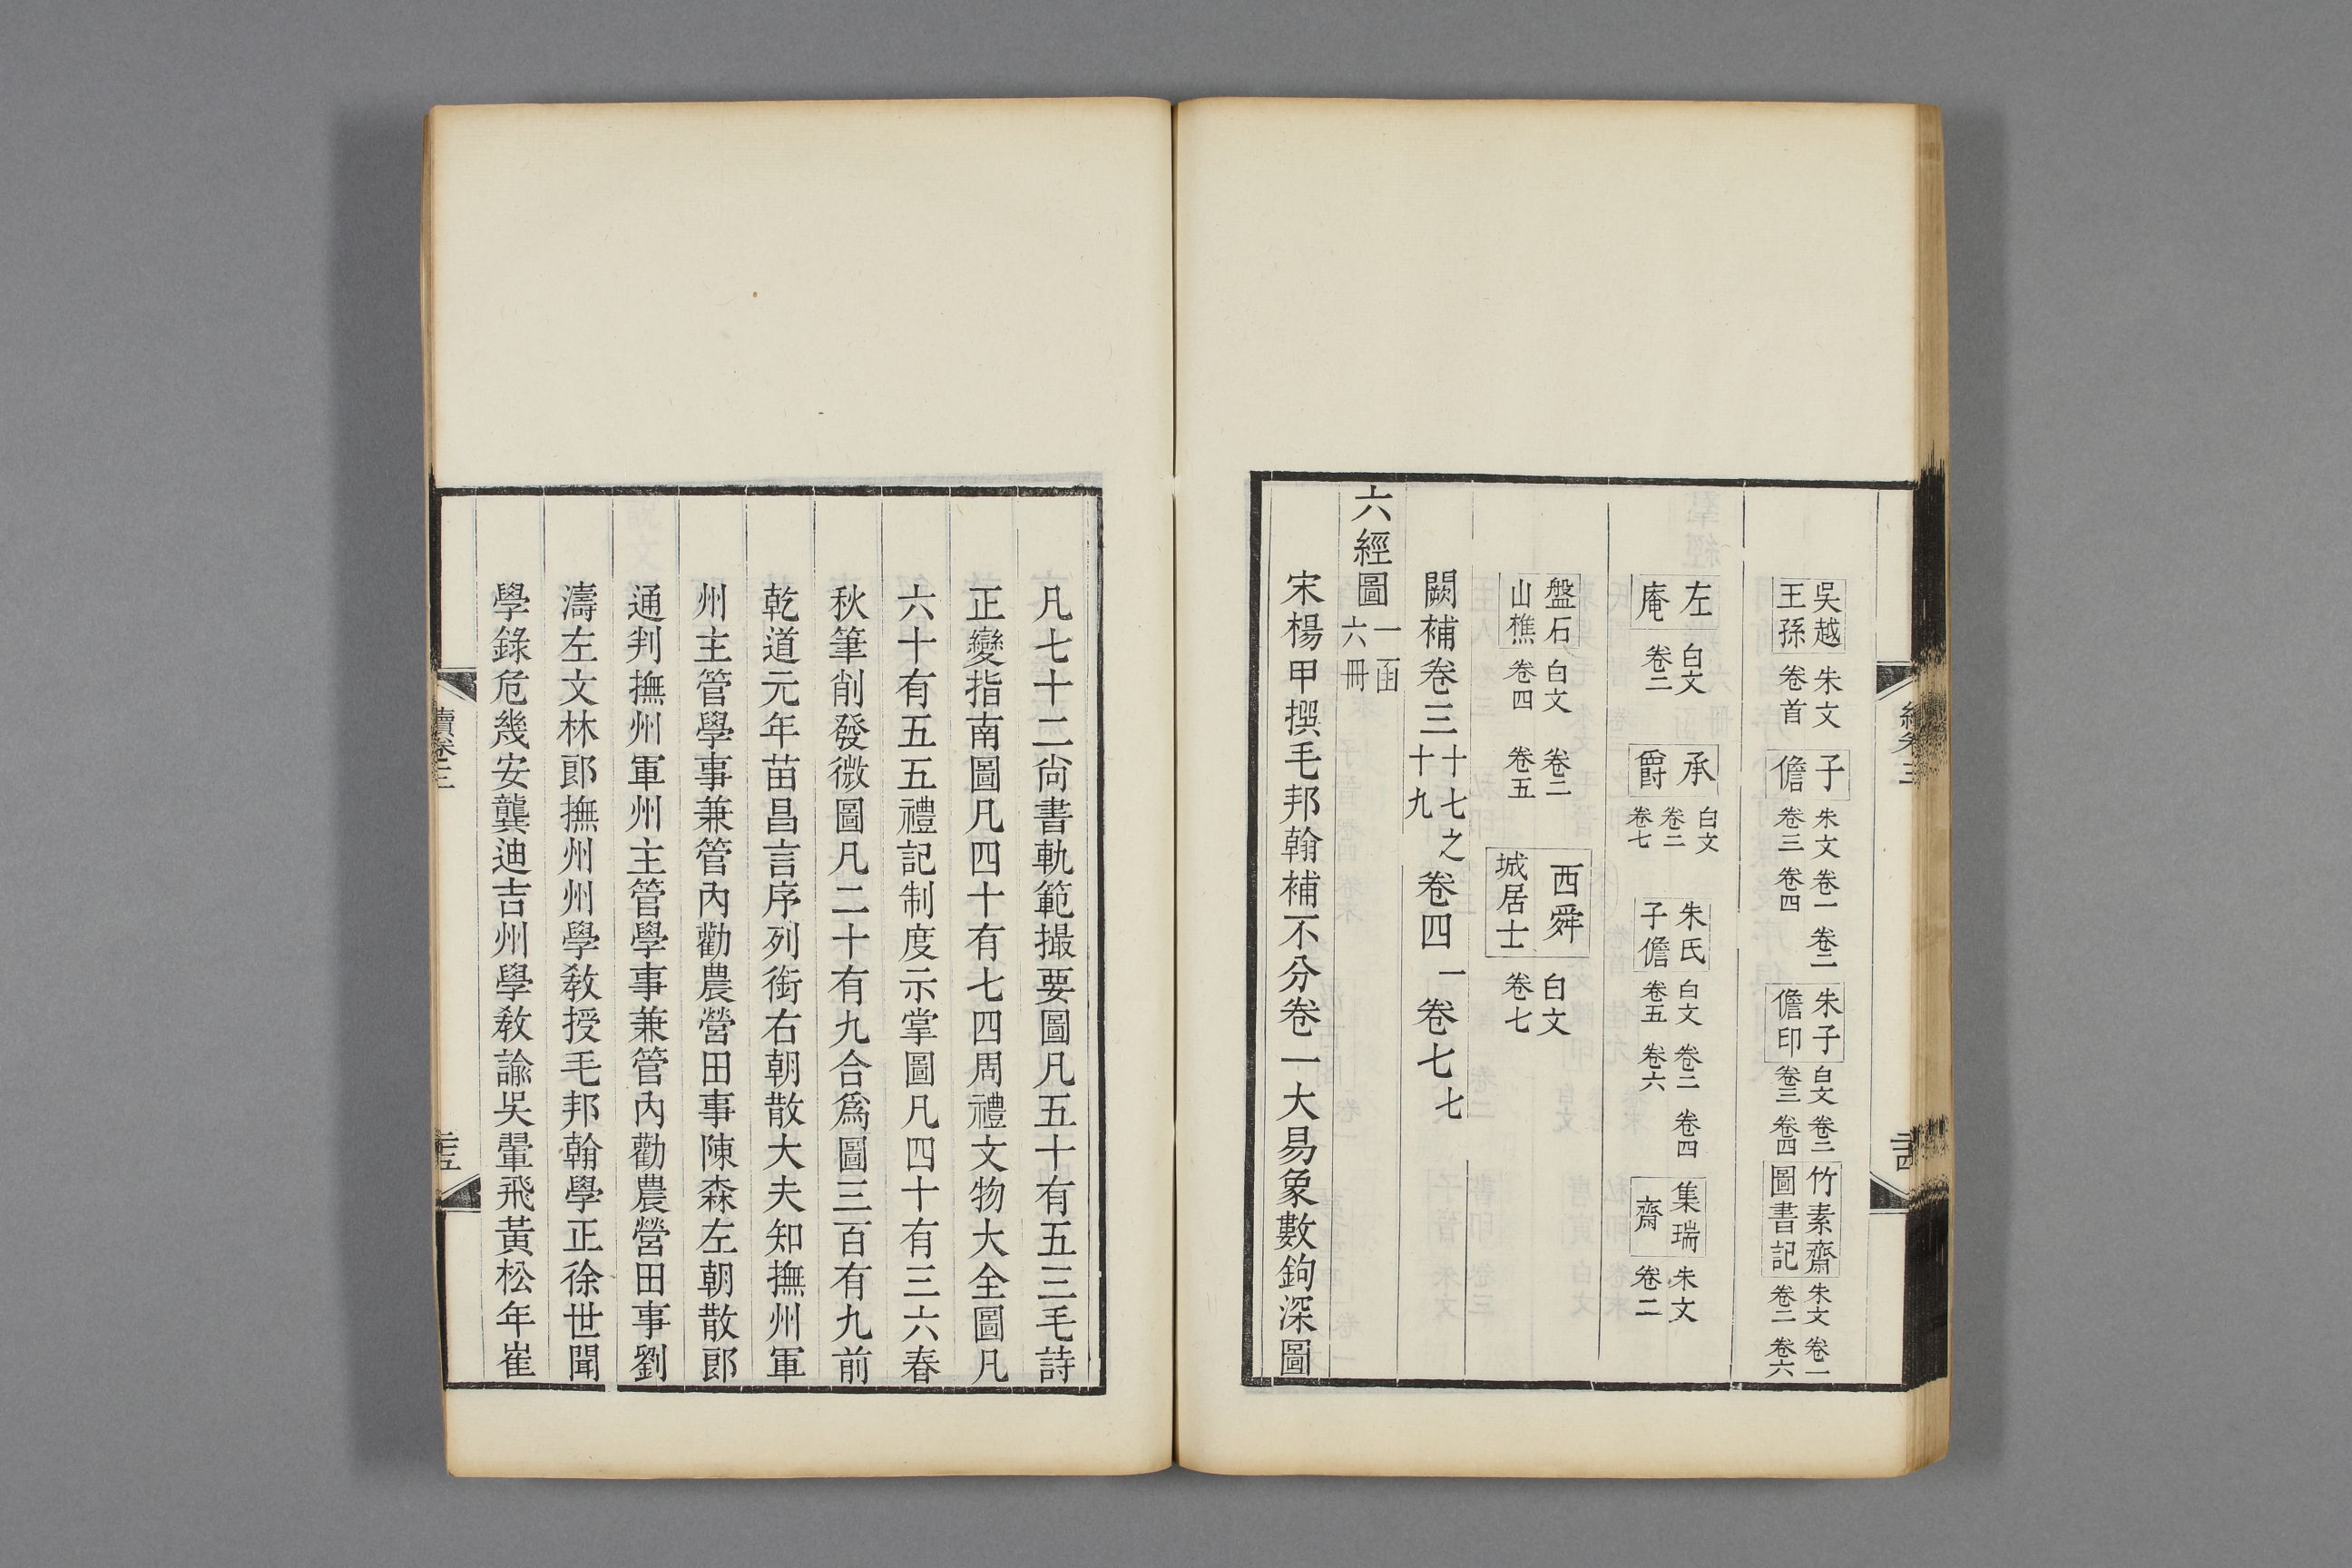 吳越王孫 朱文卷首 子儋 朱文卷一卷二卷三卷四 朱子儋印 白文卷二卷三卷四 竹素齋圖書記 朱文卷一卷二卷六
左庵 白文卷二 承爵 白文卷二卷七 朱氏子儋 白文卷二卷四卷五卷六 集瑞齋 朱文卷二
盤石山樵 白文卷二卷四卷五 西舜城居士 白文卷七
闕補卷三十七之十九卷四一卷七七
六經圖一函六冊
宋楊甲撰毛邦翰補不分卷一大易象數鉤深圖
凡七十二尙書軌範撮要圖凡五十有五三毛詩
正變指南圖凡四十有七四周禮文物大全圖凡
六十有五五禮記制度示掌圖凡四十有三六春
秋筆削發微圖凡二十有九合爲圖三百有九前
乾道元年苗昌言序列銜右朝散大夫知撫州軍
州主管學事兼管內勸農營田事陳森左朝散郎
通判撫州軍州主管學事兼管內勸農營田事劉
濤左文林郎撫州州學敎授毛邦翰學正徐世聞
學錄危幾安龔迪吉州學敎諭吳翬飛黃松年崔
續卷三
二十五